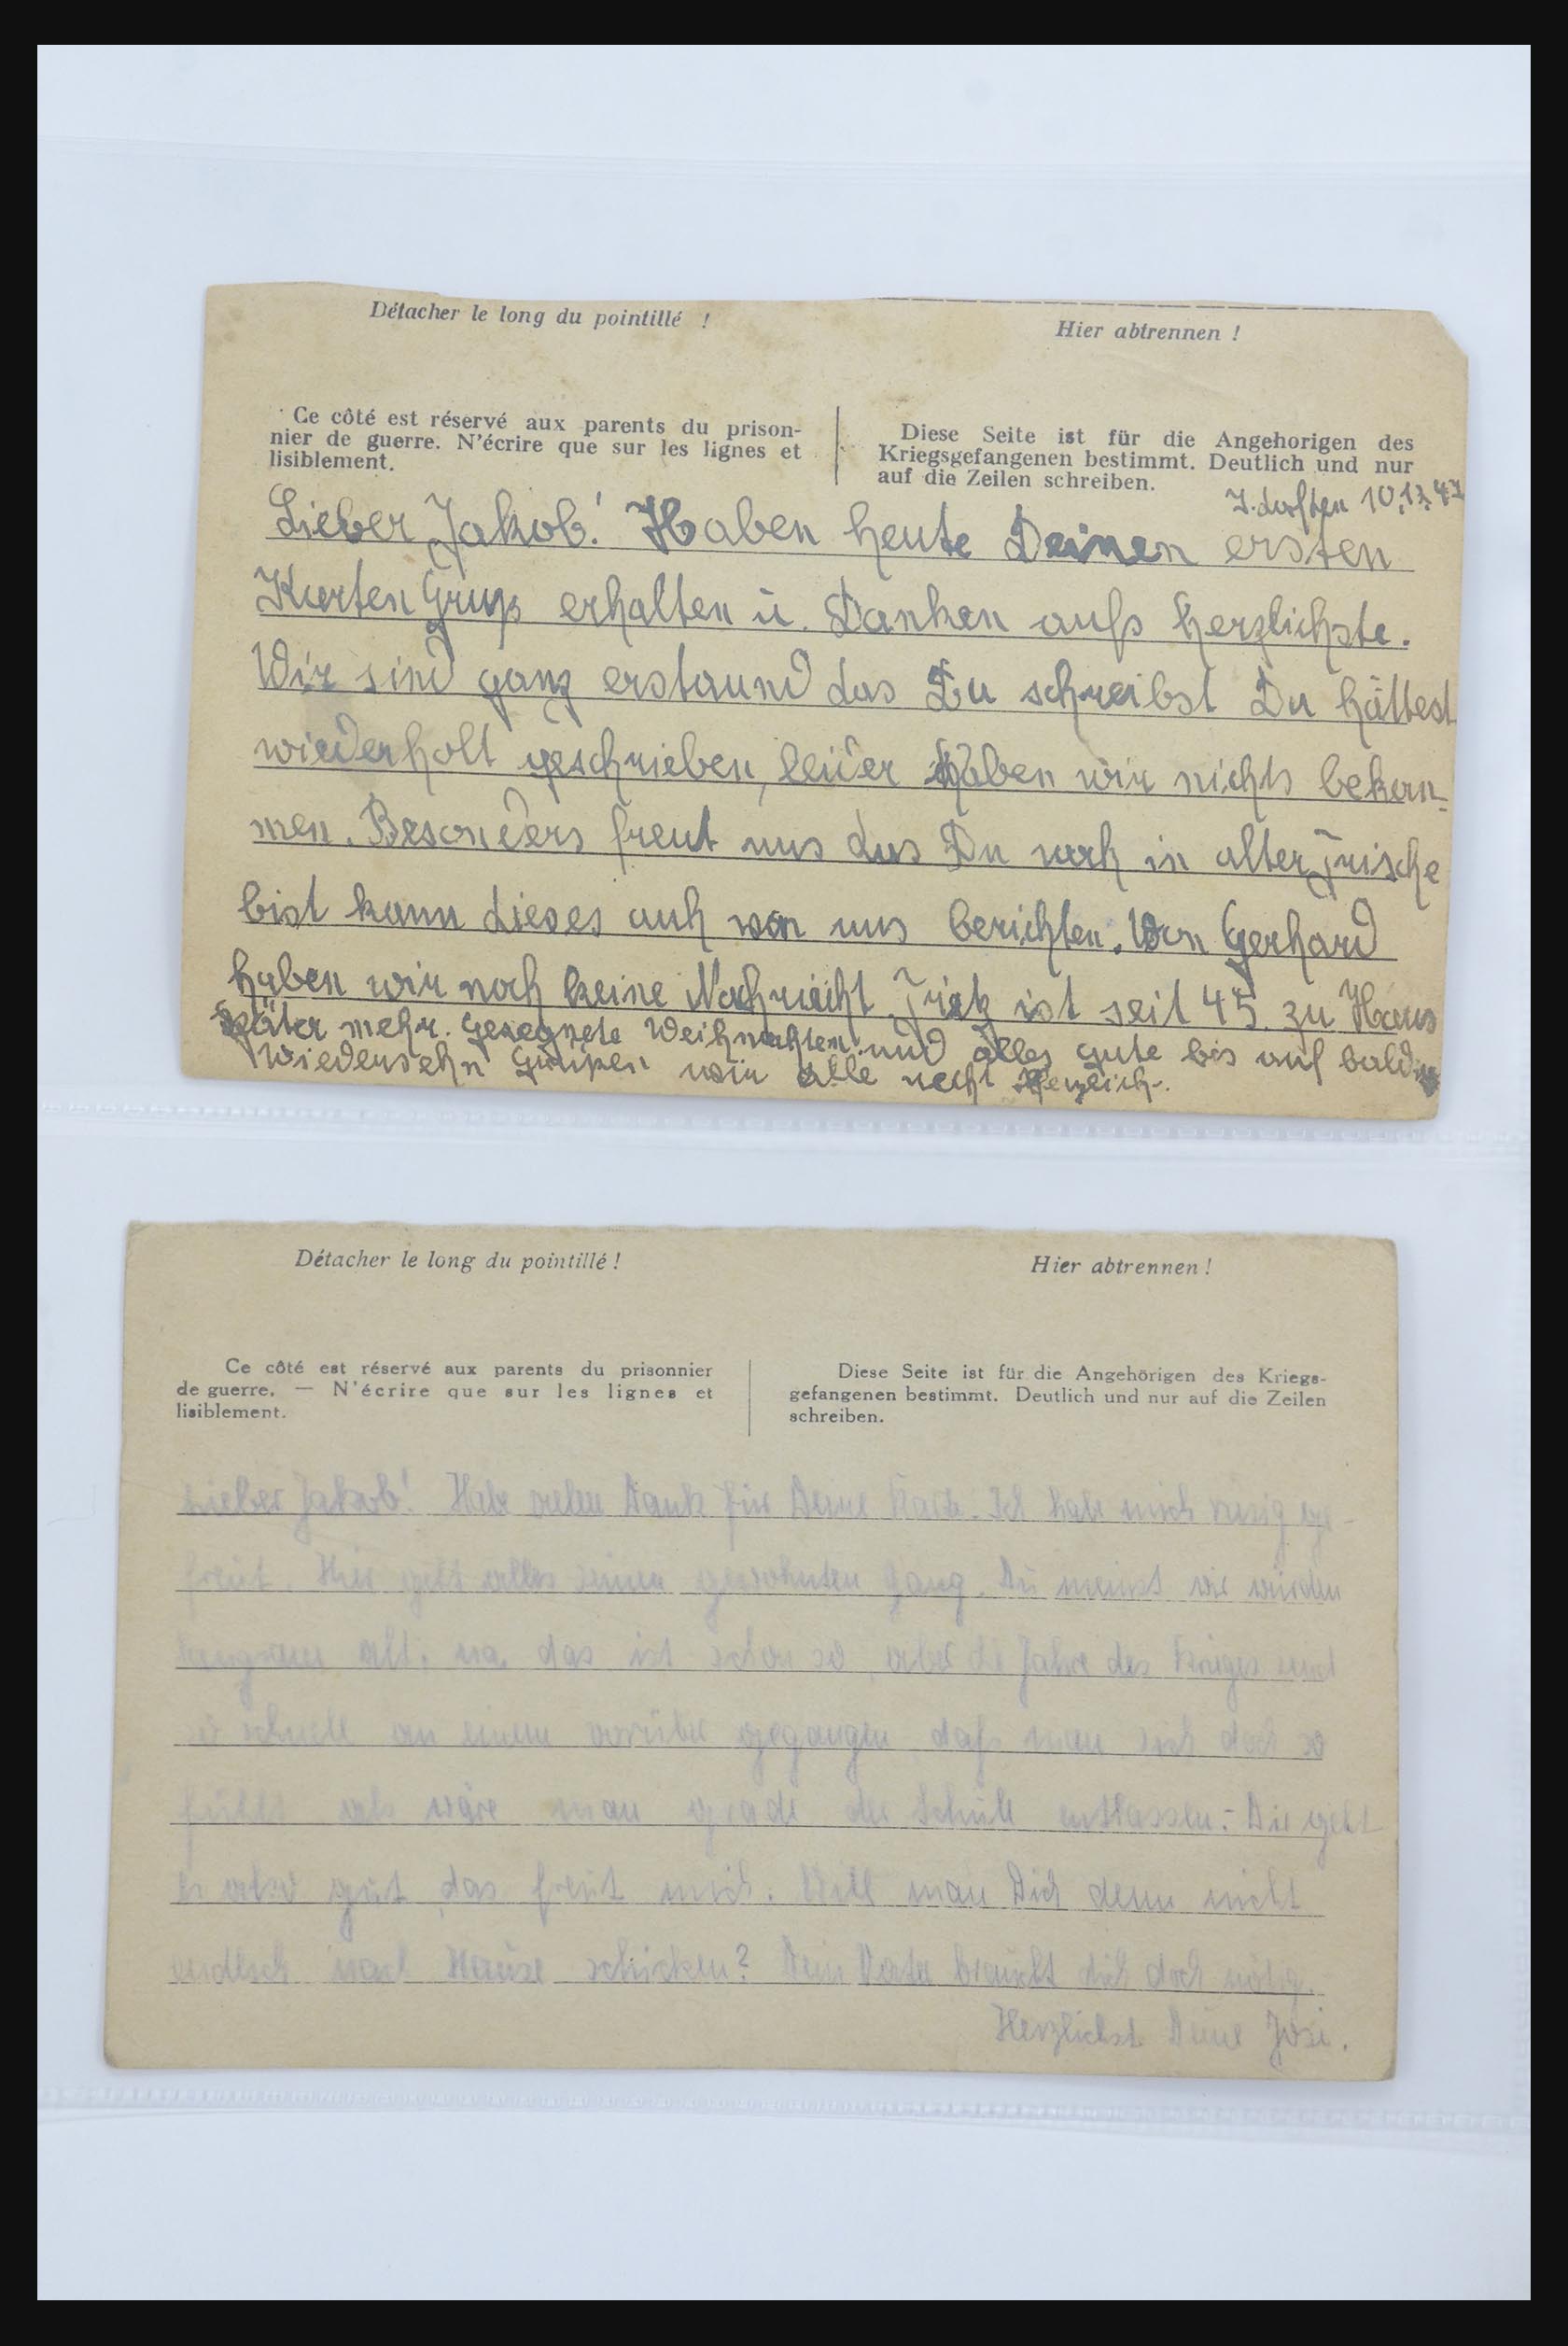 Détacher le long du pointillé !
Hier abtrennen !
Ce côté est réservé aux parents du prison-
nier de guerre. N'écrire que sur les lignes et
lisiblement.
Diese Seite ist für die Angehorigen des
Kriegsgefangenen bestimmt. Deutlich und nur
auf die Zeilen schreiben.
10.12.47
Lieber Jakob! Haben heute Deinen ersten
Karten Gruß erhalten u. Danken aufs herzlichste.
Wir sind ganz erstaund das Du schreibst Du hättest
wiederholt geschrieben, leider haben wir nichts bekom-
men. Besonders freut uns das Du noch in alter Frische
bist kann dieses auch von uns berichten. Von Gerhard
haben wir noch keine Nachricht. Fritz ist seit 45. zu Haus
Später mehr. Gesegnete Weihnachten und alles gute bis auf bald
Wiedersehn Grüßen wir alle recht Herzlich.
Détacher le long du pointillé !
Hier abtrennen !
Ce côté est réservé aux parents du prisonnier
de guerre. — N'écrire que sur les lignes et
lisiblement.
Diese Seite ist für die Angehörigen des Kriegs-
gefangenen bestimmt. Deutlich und nur auf die Zeilen
schreiben.
Lieber Jakob! Habe vielen Dank für Deine Karte. Ich habe mich riesig ge-
freut. Hier geht alles seinen gewohnten Gang. Du meinst wir würden
langsam alt, na, das ist schon so, aber die Jahre des Krieges sind
so schnell an einem vorüber gegangen daß man sich doch so
fühlt als wäre man grade der Schule entlassen.- Dir geht
es also gut, das freut mich. Will man Dich denn nicht
endlich nach Hause schicken? Dein Vater braucht dich doch nötig.
Herzlichst Deine Josi.